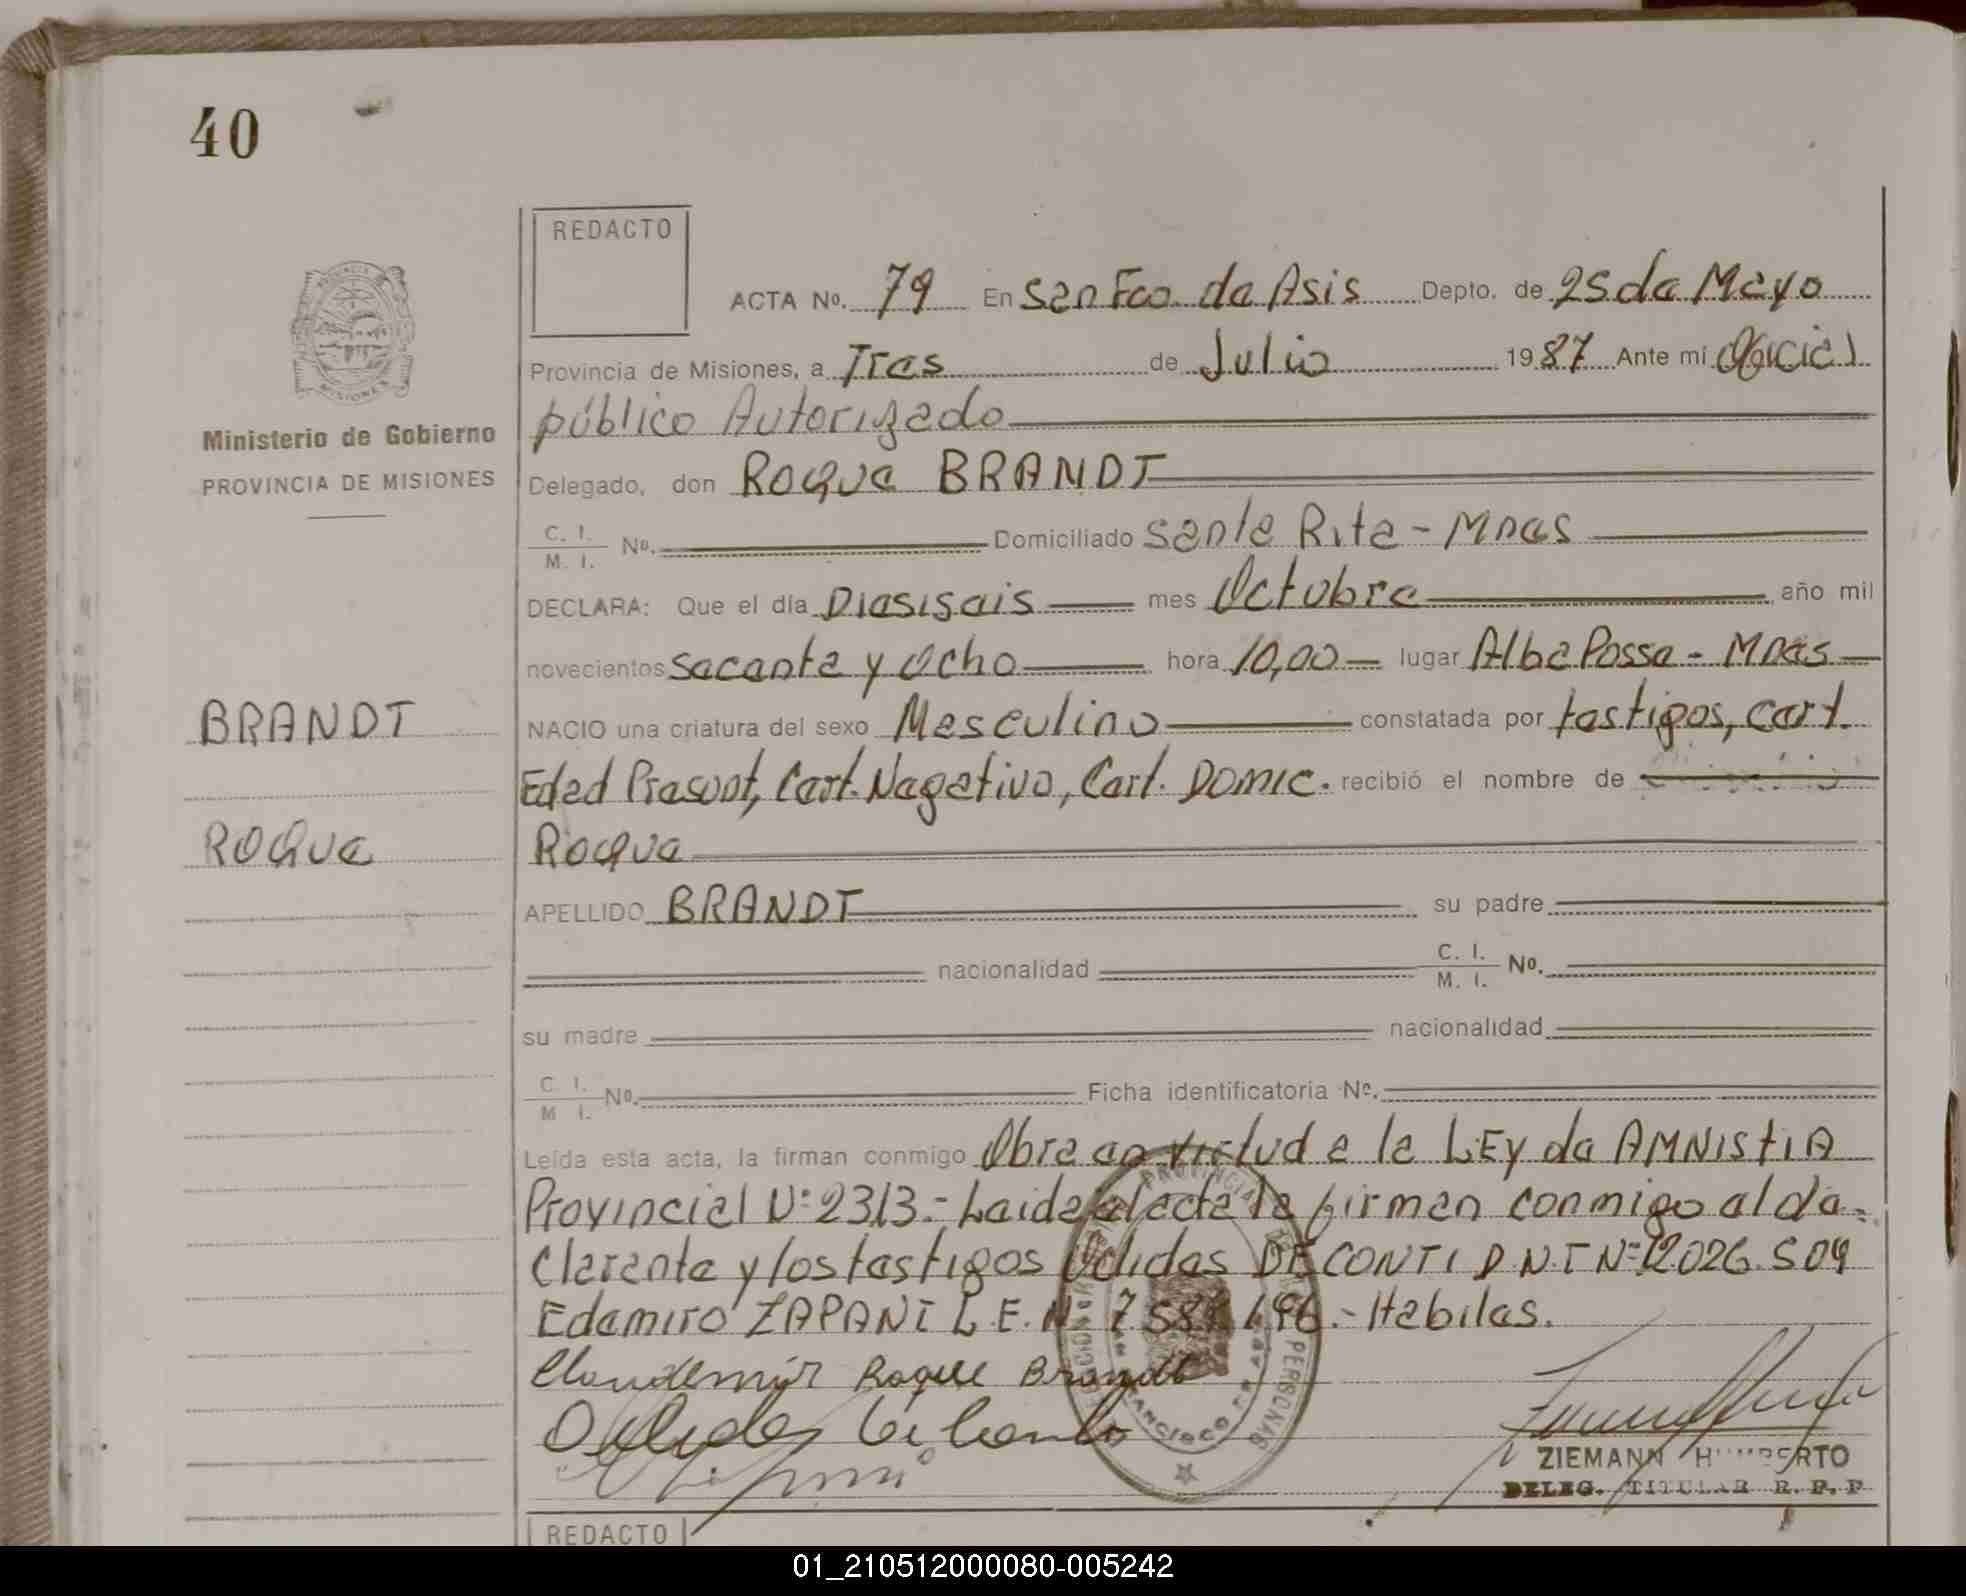 40
REDACTO
ACTA No. 79 En San Fco. de Asis Depto. de 25 de Mayo
Provincia de Misiones, a Tres de Julio 1987 Ante mí Oficial
público Autorizado
Ministerio de Gobierno
PROVINCIA DE MISIONES
Delegado, don Roque BRANDT
C. I. M. I. No. Domiciliado Santa Rita - Mnes
DECLARA: Que el día Diesiseis mes Octubre año mil
novecientos sesenta y ocho hora 10,00 lugar Alba Posse - Mnes
BRANDT
NACIO una criatura del sexo Masculino constatada por testigos, Cert.
Edad Presunt, Cert. Negativo, Cert. Domic. recibió el nombre de
ROQUE
Roque
APELLIDO BRANDT su padre
nacionalidad C. I. M. I. No.
su madre nacionalidad
C. I. M. I. No. Ficha identificatoria No.
Leída esta acta, la firman conmigo Obra en virtud a la LEY de AMNISTIA
Provincial N: 2313.- Leida el acta la firman conmigo el de-
clarante y los testigos DE CONTI D.N.I N= 12026.504
Edemiro ZAPANI L.E.N 7.581.196.- Habiles.
Claudemir Roque Brandt
ZIEMANN HUMBERTO
DELEG. TITULAR R. P. P
REDACTO
01_210512000080-005242